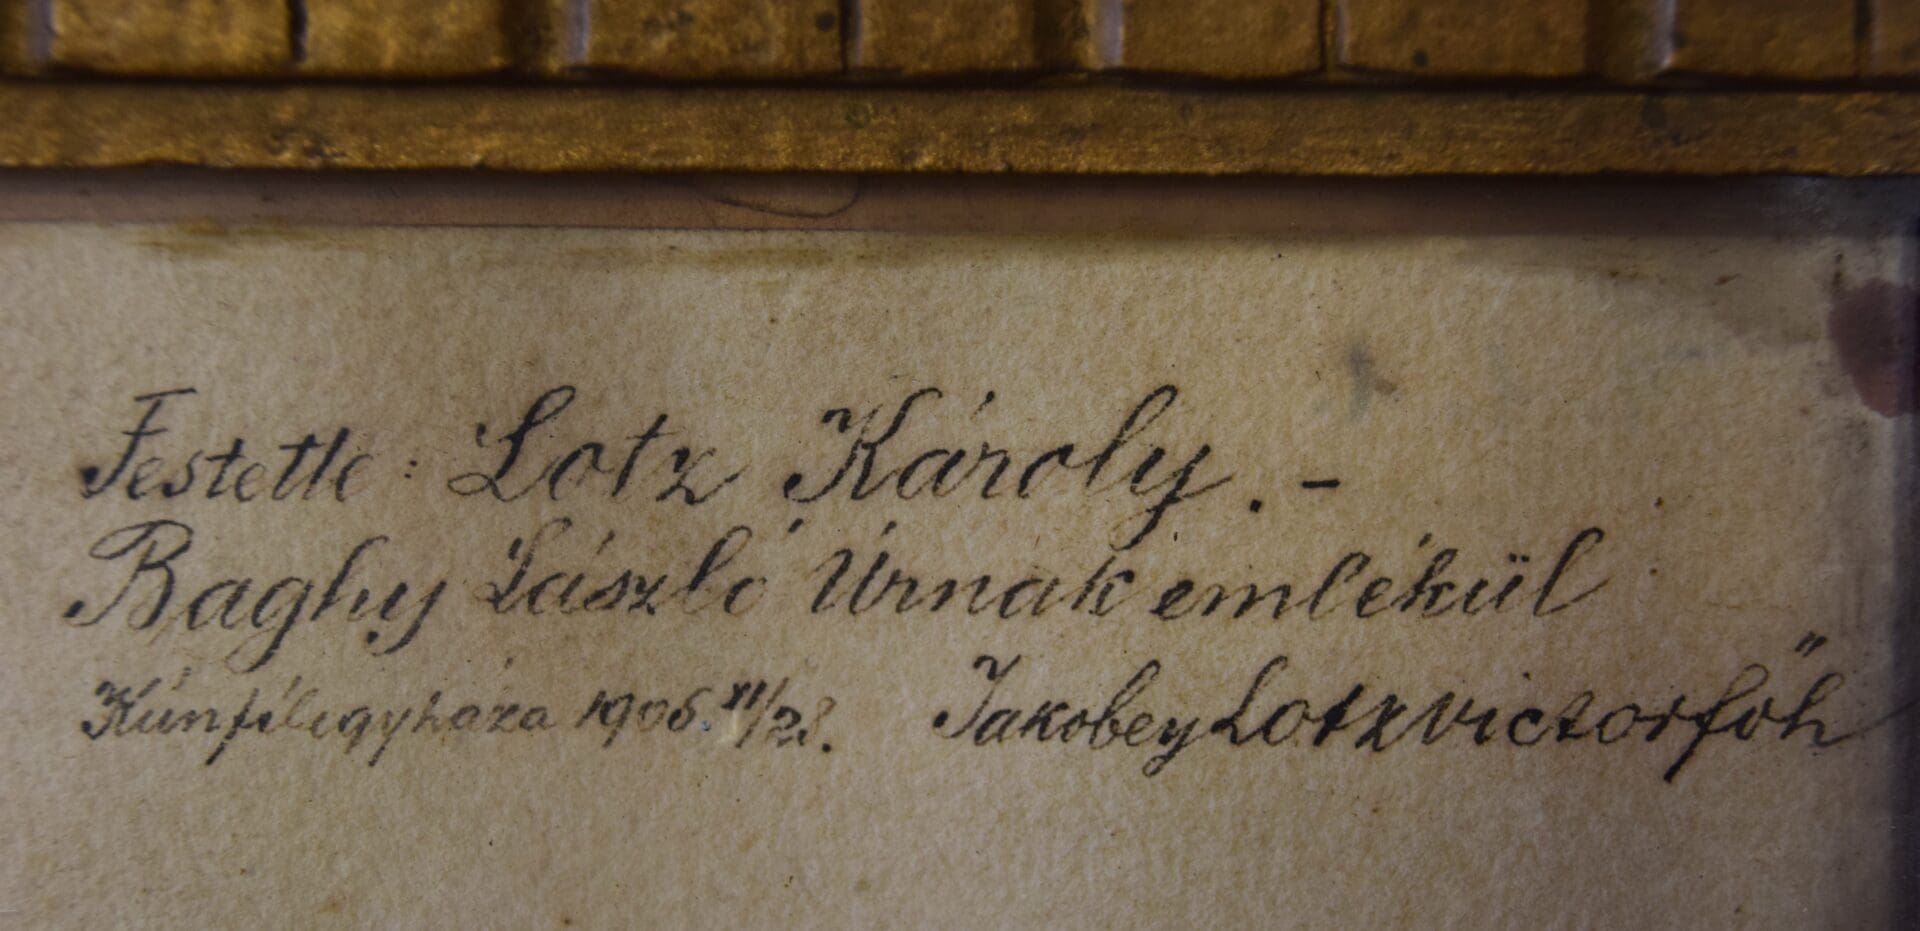 Festette: Lotz Károly. –
Baghy László Úrnak emlékül
Kúnfélegyháza 1906 XII/28. Jakobey Lotz victor főh